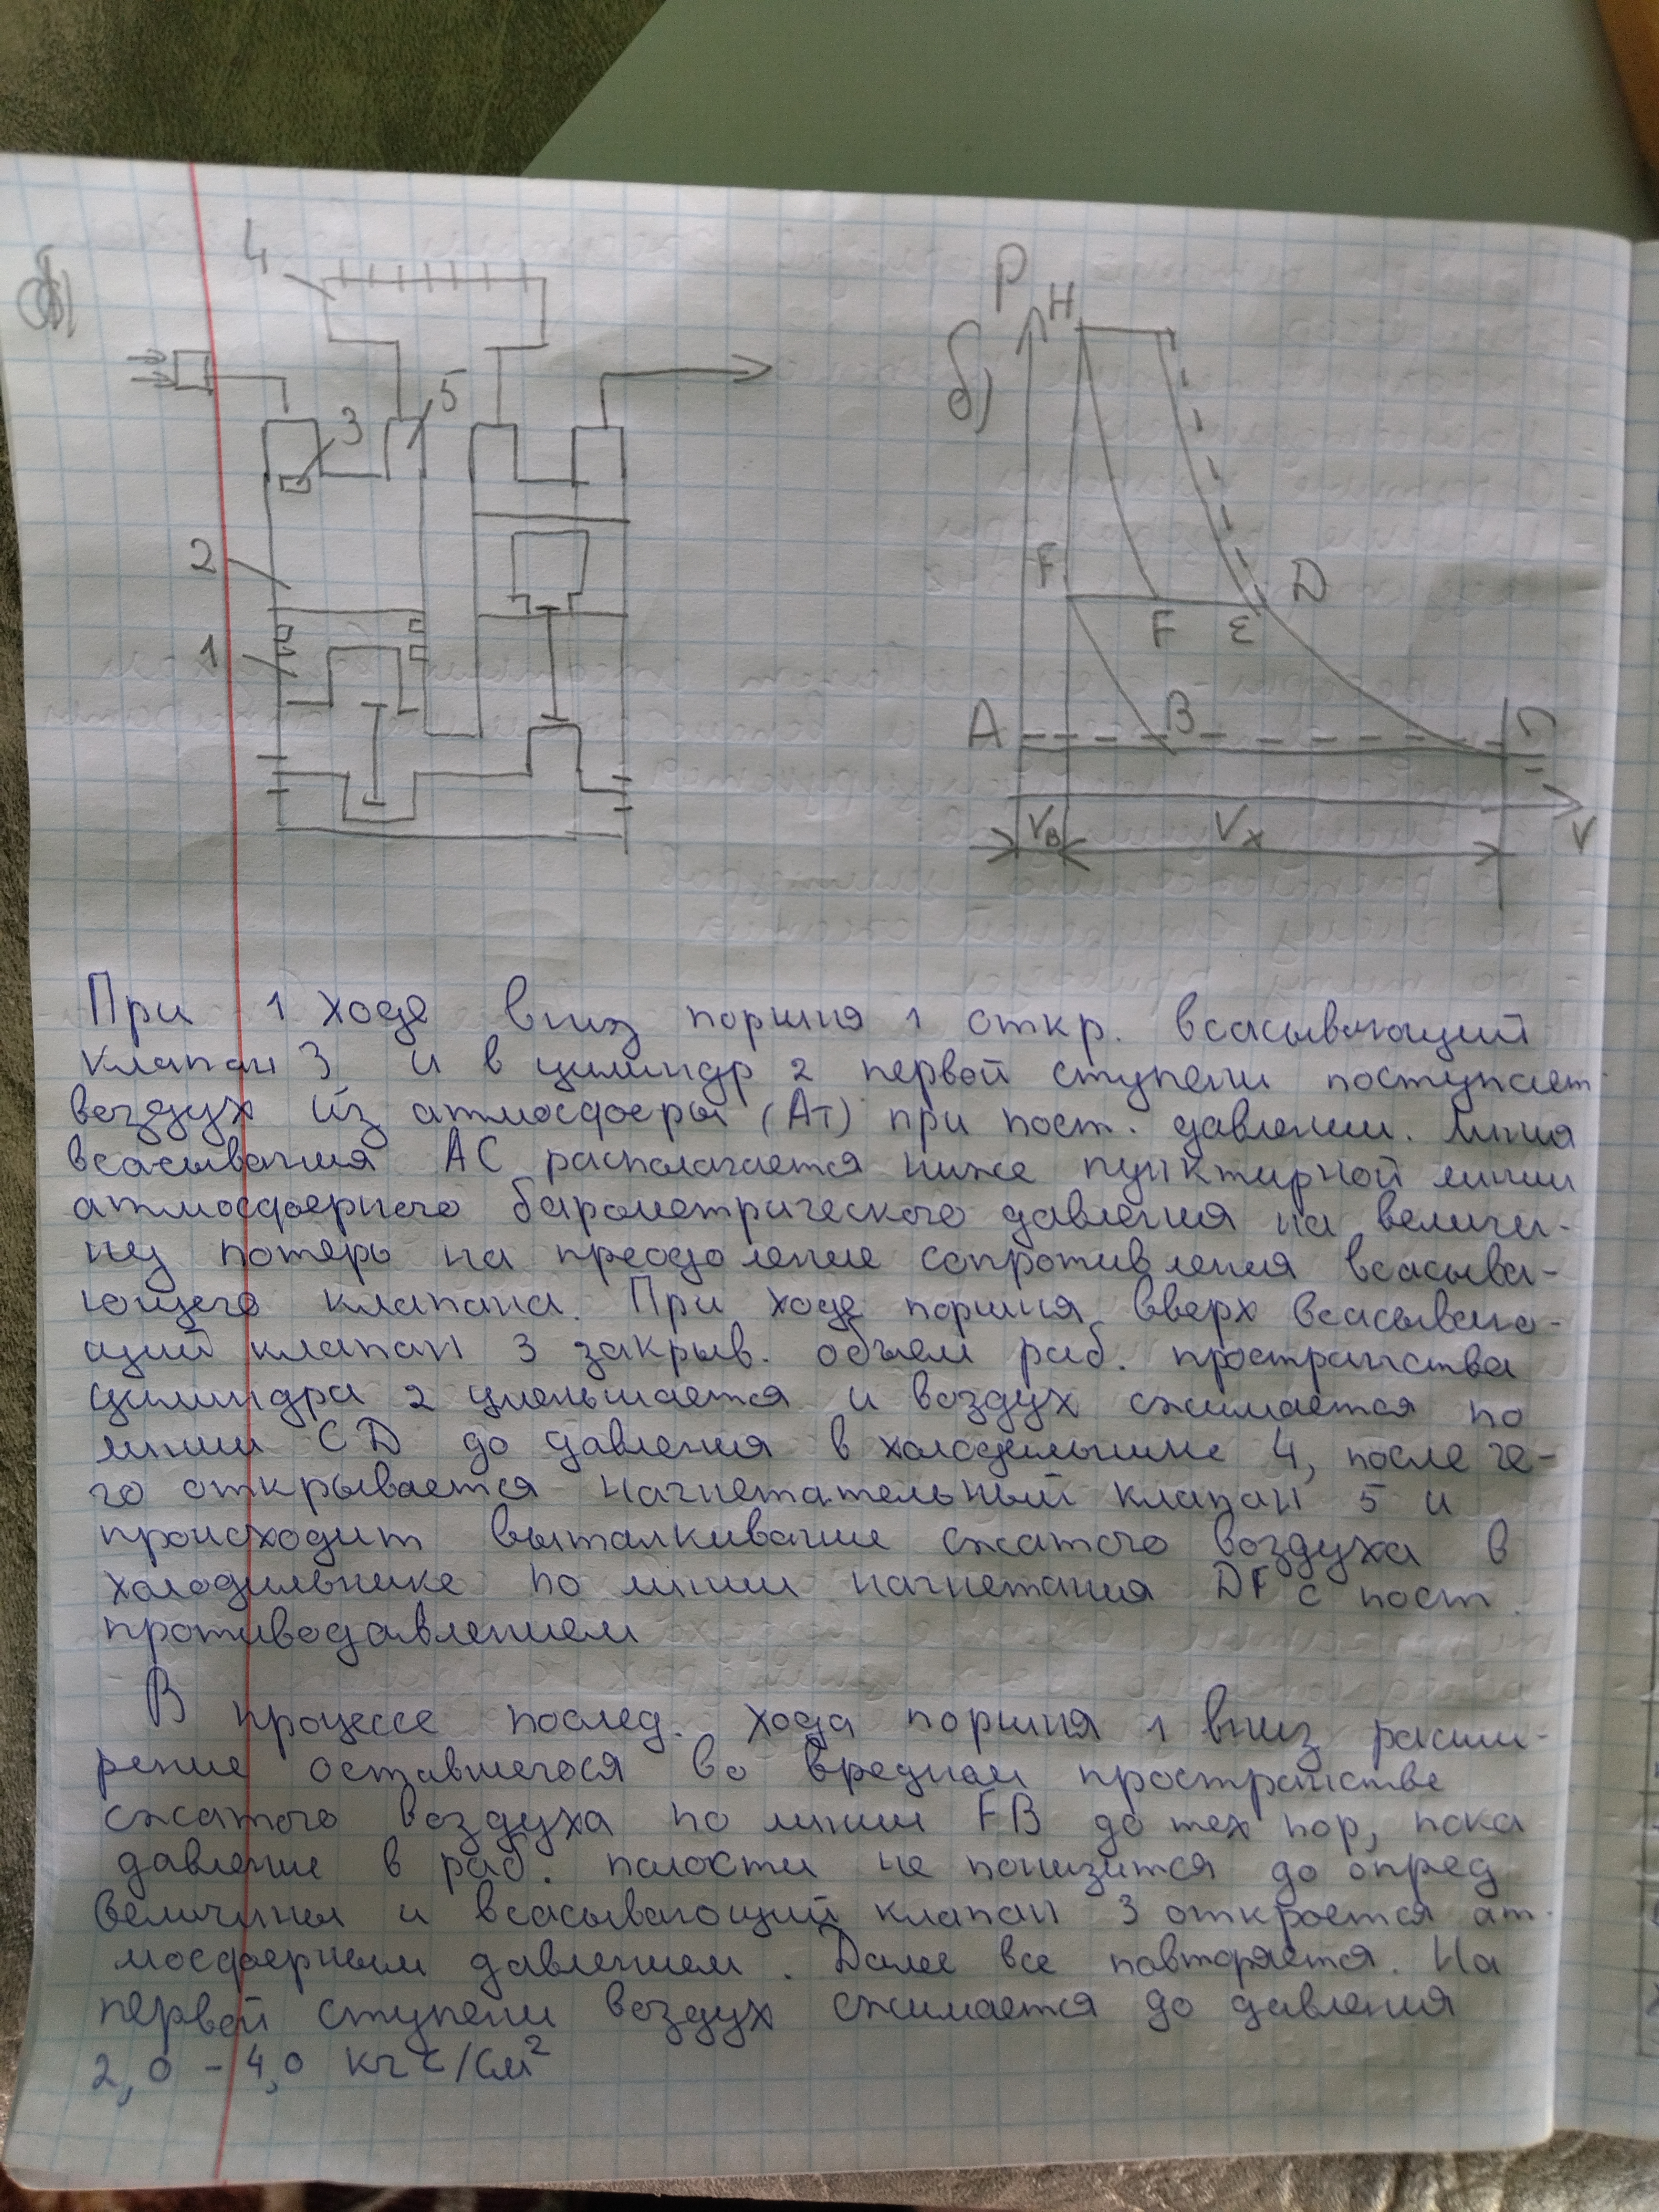 4
P
H
б)
5
3
2
1
F
D
F
E
A
B
C
Vв
Vx
V
При 1 ходе вниз поршня 1 откр. всасывающий
клапан 3 и в цилиндр 2 первой ступени поступает
воздух из атмосферы (Ат) при пост. давлении. Линия
всасывания АС располагается ниже пунктирной линии
атмосферного барометрического давления на величи-
ну потерь на преодоление сопротивления всасыва-
ющего клапана. При ходе поршня вверх всасываю-
щий клапан 3 закрыв. объем раб. пространства
цилиндра 2 уменьшается и воздух сжимается по
линии CD до давления в холодильнике 4, после че-
го открывается нагнетательный клапан 5 и
происходит выталкивание сжатого воздуха в
холодильнике по линии нагнетания DF с пост.
противодавлением
В процессе послед. хода поршня 1 вниз расши-
рение оставшегося во вредном пространстве
сжатого воздуха по линии FB до тех пор, пока
давление в раб. полости не понизится до опред
величины и всасывающий клапан 3 откроется ат-
мосферным давлением. Далее все повторяется. На
первой ступени воздух сжимается до давления
2,0 - 4,0 кгс/см²